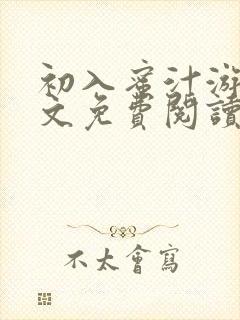 初入蜜汁游
文免費閱讀
不太會寫